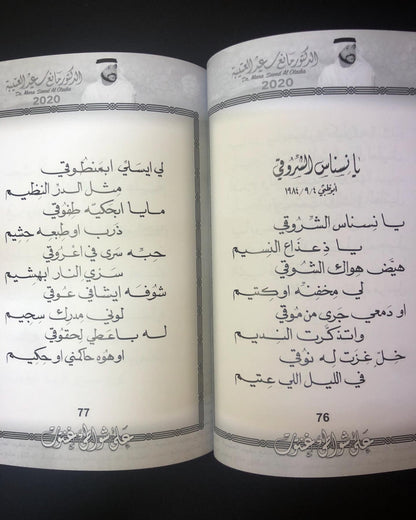 الدكتور مانع سعيد العتيبة
Dr. Mana Saeed Al Otaiba
2020
يا نسناس الشروقي
أبوظبي ٤ / ٩ / ١٩٨٤
يا نسناس الشروقي
يا ذعذاع النسيم
هيّض هواك الشوقي
لي مخفنّه اوكتيم
او دمعي جرى من موقي
واتذكّرت النديم
خلّ غزت له نوقي
في الليل اللي عتيم
76
على شواطئ غنتوت
الدكتور مانع سعيد العتيبة
Dr. Mana Saeed Al Otaiba
2020
لي ايسلي ابمنطوقي
مثل الدرّ النظيم
مايا ابحكيّه طفوقي
ذرب او طبعه حثيم
حبّه سرى في اعروقي
سريّ النار ابهشيم
شوفه ايشافي عوقي
لوني مدرك سجيم
له باعطي لحقوقي
او هوه حاكمني او حكيم
77
على شواطئ غنتوت